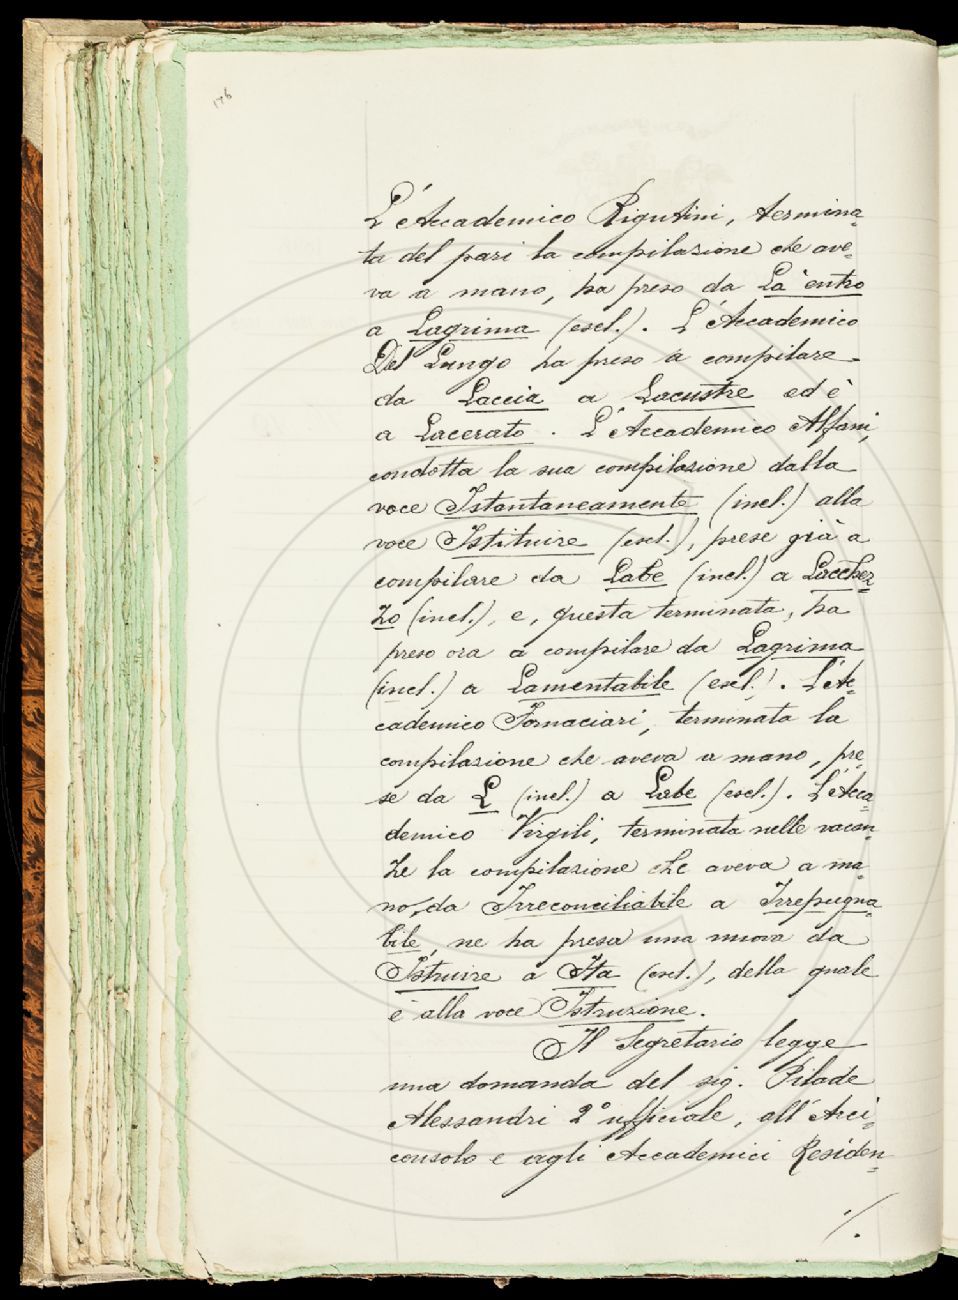 176
L'Accademico Rigutini, termina=
ta del pari la compilazione che ave=
va a mano, ha preso da Là entro
a Lagrima (escl.). L'Accademico
Del Lungo ha preso a compilare
da Laccia a Lacustre ed è
a Lacerato. L'Accademico Alfani,
condotta la sua compilazione dalla
voce Istantaneamente (incl.) alla
voce Istituire (escl.), prese già a
compilare da Labe (incl.) a Lacchez=
zo (incl.), e, questa terminata, ha
preso ora a compilare da Lagrima
(incl.) a Lamentabile (escl.). L'Ac=
cademico Fornaciari, terminata la
compilazione che aveva a mano, pre=
se da L (incl.) a Labe (escl.). L'Acca=
demico Virgili, terminata nelle vacan=
ze la compilazione che aveva a ma=
no, da Irreconciliabile a Irrepugna=
bile, ne ha presa una nuova da
Istruire a Ita (escl.), della quale
è alla voce Istruzione.
Il Segretario legge
una domanda del sig. Pilade
Alessandri 2° ufficiale, all'Arci=
consolo e agli Accademici Residen=
./.